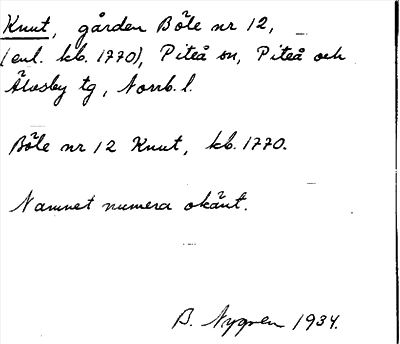 Knut, gården Böle nr 12,
(enl. kb. 1770), Piteå sn, Piteå och
Älvsby tg, Norrb. l.
Böle nr 12 Knut, kb. 1770.
Namnet numera okänt.
B. Nygren 1934.